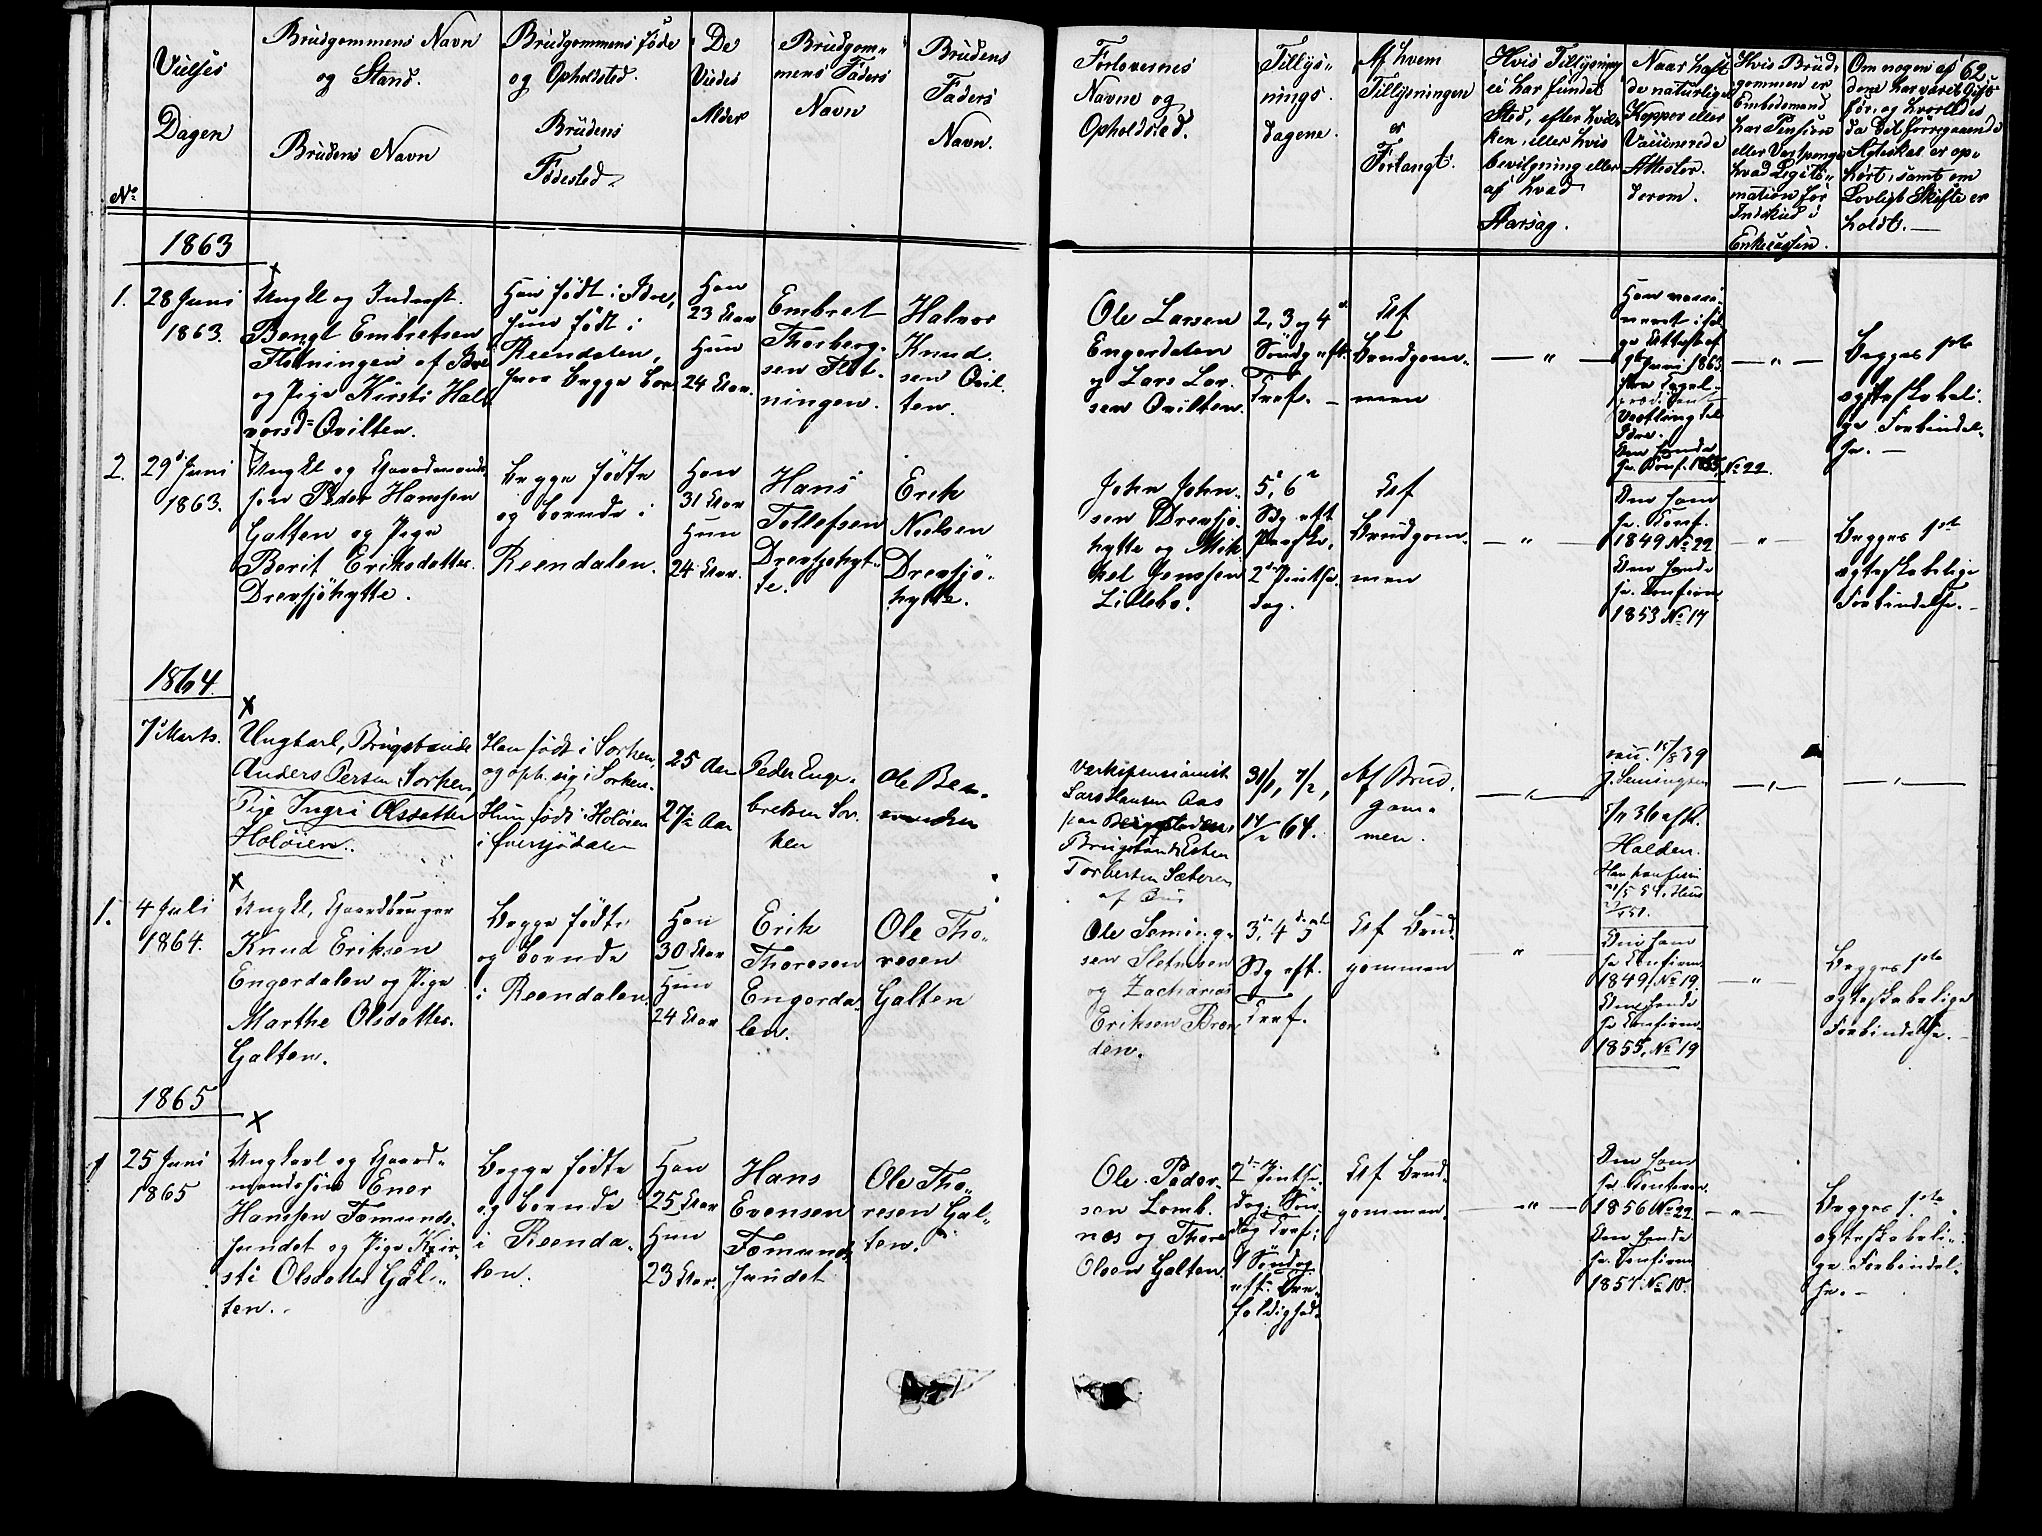 62.
Vielses
Dagen
No
Brudgommens Navn
og Stand.
Brudens Navn
Brudgommens Føde
og Opholdsted.
Brudens
Fødested.
De
Viedes
Alder
Brudgom-
mens Faders
Navn
Brudens
Faders
Navn.
Forlovernes
Navne og
Opholdsted.
Tillys-
nings-
dagene.
Af hvem
Tillysningen
er
Forlangt.
Hvis Tillysning
ei har fundet
Sted, efter hvil-
ken, eller hvis
bevilgning eller
af hvad
Aarsag.
Naar haft
de naturlige
Kopper eller
Vaccinerede
Attester
derom.
Hvis Brud-
gommen er
Embedsmand
har Pension
hvad Legiti-
mation for
Indskud i
Enkecassen.
Om nogen af
dem har været Gift
før, og hvorledes
da det foregaaende
Ægteskab er op-
hørt, samt om
Lovligt Skifte er
holdt.
1863
1.
28 Juni
1863.
Ungkl og Inderst.
Bengt Embretsen
Fløtningen af Idre
og Pige Kirsti Hal-
vorsd Qvilten.
Han født i Idre,
hun født i
Reendalen,
hvor begge bor
Han
23 Aar
Hun
24 Aar.
Embret
Thorberg-
sen Fløt-
ningen.
Halvor
Knud-
sen Qvil-
ten.
Ole Larsen
Engerdalen
og Lars Lar-
sen Qvilten.
2, 3 og 4
Søndg eft.
Tref.
Af
Brudgom-
men
Begges 1ste
ægteskabeli-
ge Forbindel-
se.
2.
29 Juni
1863.
Ungkl og Gaardmands-
søn Peder Hanssen
Galten og Pige
Berit Eriksdatter
Drevsjöhytte.
Begge fødte
og boende i
Reendalen.
Han
31 Aar
Hun
24 Aar.
Hans
Tollefsen
Drevsjøhyt-
te.
Erik
Nielsen
Drevsjö-
hytte.
John John-
sen Drevsjö-
hytte og Mik-
kel Jenssen
Lillebo.
5, 6
Sdg eft
Paaske,
2 Pintse-
dag.
Af
Brudgom-
men
Den Hand
se Konf.
1849 No 22
Den Hende
se Konfirm
1853 No 17
Begges 1ste
ægteskabelige
Forbindelse.
1864.
7 Marts.
Ungkarl, Brugsbrude
Anders Persen Sorken,
Pige Ingri Olsdatter
Holöien.
Han født i Sorken,
og oph. sig i Sorken.
Hun född i Holöien
i Øversjödalen
25 Aar
27½ Aar
Peder Enge-
bretsen Sor-
ken
Ole
Værkspensionist
Lars Hansen Aas
paa
Torbersen Sæteren
31/1, 7/2,
14/2 64.
Af Brud-
gom-
men.
1.
4 Juli
1864.
Ungkl, Gaardbruger
Knud Eriksen
Engerdalen og Pige
Marthe Olsdatter
Galten.
Begge fødte
og boende
i Reendalen.
Han
30 Aar
Hun
24 Aar
Erik
Thoresen
Engerda-
len.
Ole Tho-
resen
Galten
Ole Seming-
sen Sletmoen
og Zacharias
Eriksen Bron-
den.
3, 4 5
Sdg eft.
Tref.
Af Brud-
gommen
Den Hand
se Konfirm.
1849, No 19.
Den Hende
se Konfirm.
1855, No 19
Begges 1ste
ægteskabelige
Forbindelse.
1865
1
25 Juni
1865
Ungkarl og Gaard-
mandssøn Ener
Hanssen Femunds-
sundet og Pige Kir-
sti Olsdatter Gal-
ten.
Begge fødte
og boende
i Reenda-
len.
Han
25 Aar
Hun
23 Aar.
Hans
Evensen
Femund-
sundet
Ole Tho-
resen Gal-
ten.
Ole Peder-
sen Lomb-
næs og Thore
Olsen Galten.
2 Pintse-
dag, Søn-
dag Tref:
1 Søndag
eft: Tre-
foldighed.
Af Brud-
gommen.
Den Hand
se Konfirm.
1856 No 22
Den Hende
se Konfirm
1857. No 10.
Begges 1ste
ægteskabeli-
ge Forbindel-
se.